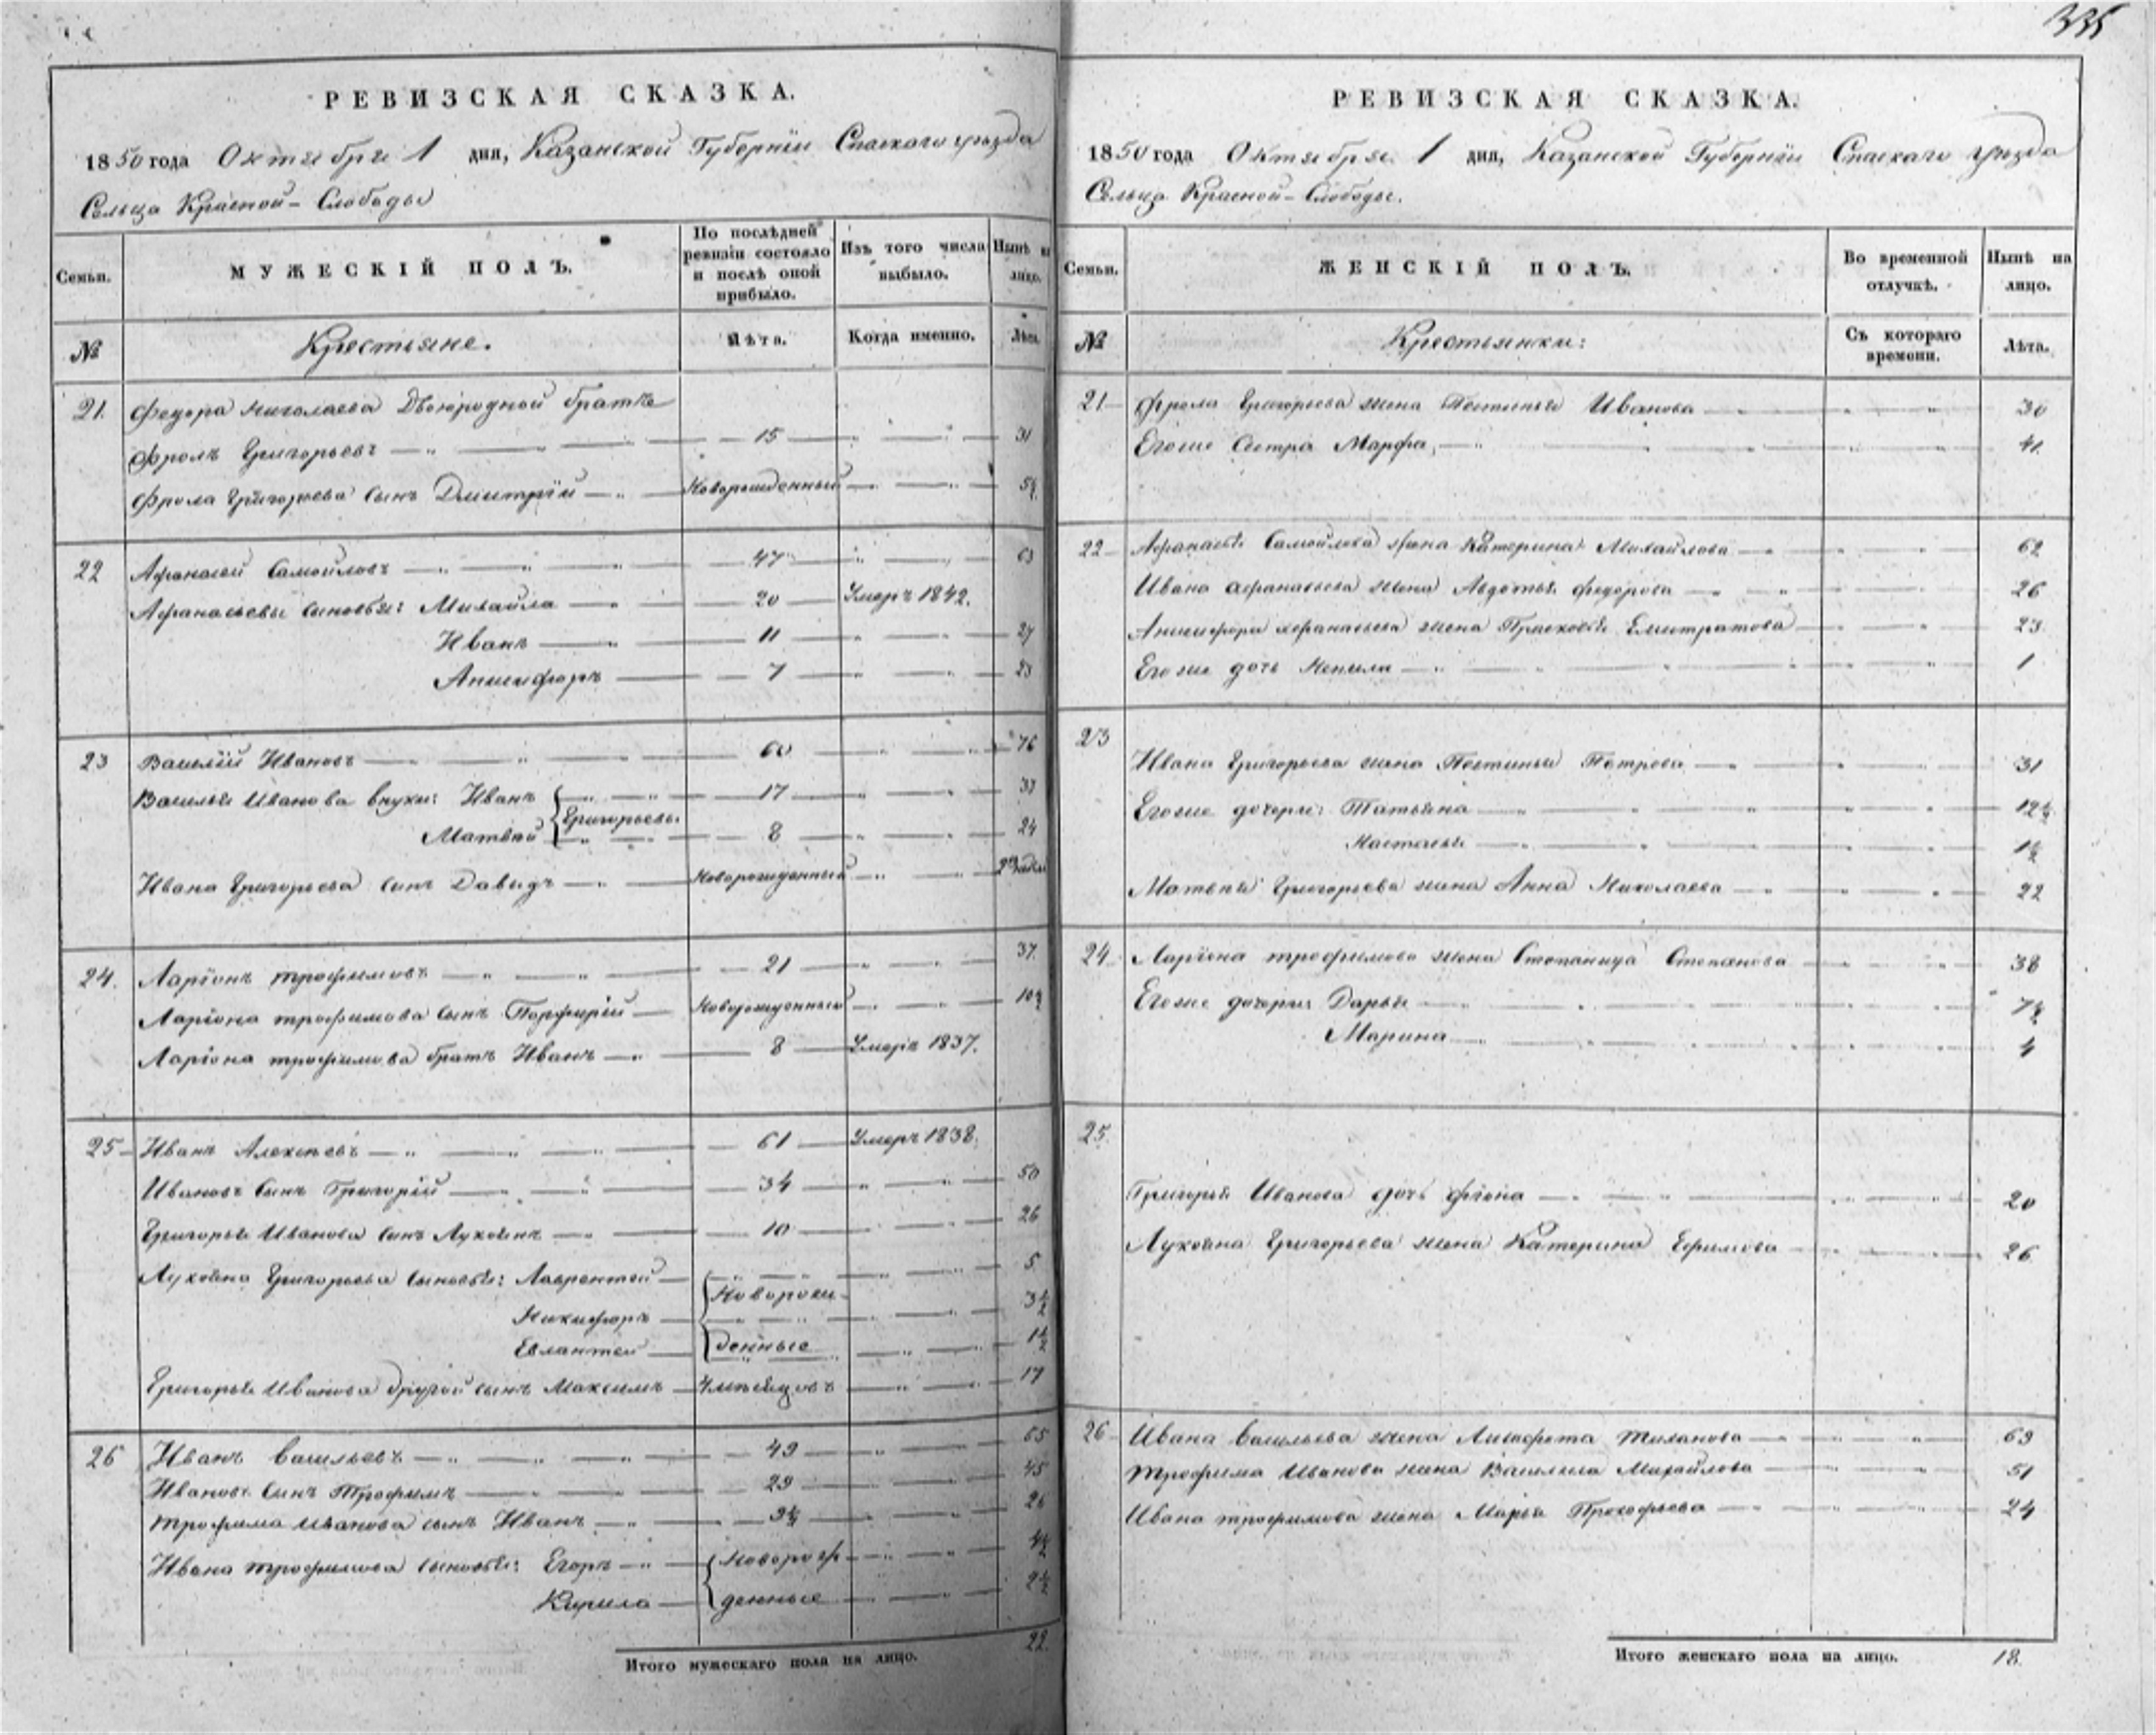 335
РЕВИЗСКАЯ СКАЗКА.
1850 года Октября 1 дня, Казанской Губернїи Спаскаго уѣзда
Сельца Красной-Слободы
Семьи.
МУЖЕСКІЙ ПОЛЪ.
По послѣдней ревизіи состояло и послѣ оной прибыло.
Изъ того числа выбыло.
Нынѣ на лицо.
№
Крестьяне.
Лѣта.
Когда именно.
Лѣта.
21. Федора Николаева Двоюродной братъ
Фролъ Григорьевъ 15 31
Фрола Григорьева сынъ Дмитрїй Новорожденный 5½
22 Афанасей Самойловъ 47 63
Афанасьевы сыновья: Михайла 20 Умеръ 1842.
Иванъ 11 27
Аникифоръ 7 23
23 Василїй Ивановъ 60 76
Василья Иванова внуки: Иванъ 17 33
Григорьевы
Матвей 8 24
Ивана Григорьева сынъ Давыдъ Новорожденный
24. Ларїонъ трофимовъ 21 37.
Ларїона трофимова сынъ Порфирїй Новорожденный 10½
Ларїона трофимова братъ Иванъ 8 Умеръ 1837.
25 Иванъ Алексѣевъ 61 Умеръ 1838.
Ивановъ сынъ Григорїй 34 50
Григорья Иванова сынъ Лукоянъ 10 26
Лукояна Григорьева сыновья: Лаврентей 5
Новорож-
Никифоръ 3½
Евлантей денные 1½
Григорья Иванова другой сынъ Максимъ 17
26 Иванъ Васильевъ 49 65
Ивановъ сынъ Трофимъ 29 45
трофима Иванова сынъ Иванъ 26
Ивана трофимова сыновья: Егоръ Новорож 4½
Кирила денные 2½
Итого мужескаго пола на лицо. 22.
РЕВИЗСКАЯ СКАЗКА.
1850 года Октября 1 дня, Казанской Губернїи Спаскаго уѣзда
Сельца Красной-Слободы.
Семьи.
ЖЕНСКІЙ ПОЛЪ.
Во временной отлучкѣ.
Нынѣ на лицо.
№
Крестьянки:
Съ котораго времени.
Лѣта.
21 Фрола Григорьева жена Устинья Иванова 30
Егоже Сестра Марфа, 41
22 Афанасья Самойлова жена Катерина Михайлова 62
Ивана Афанасьева жена Авдотья Федорова 26
Аникифора Афанасьева жена Прасковья 23
Егоже дочь Ненила 1
23
Ивана Григорьева жена Устинья Петрова 31
Егоже дочери: Татьяна 12½
Настасья 1½
Матвея Григорьева жена Анна Николаева 22
24 Ларїона трофимова жена Степанида Степанова 38
Егоже дочери: Дарья 7½
Марина 4
25.
Григорья Иванова дочь 20
Лукояна Григорьева жена Катерина Ефимова 26
26 Ивана Васильева жена 69
трофима Иванова жена Василиса Михайлова 51
Ивана трофимова жена Марья Прокофьева 24
Итого женскаго пола на лицо. 18.